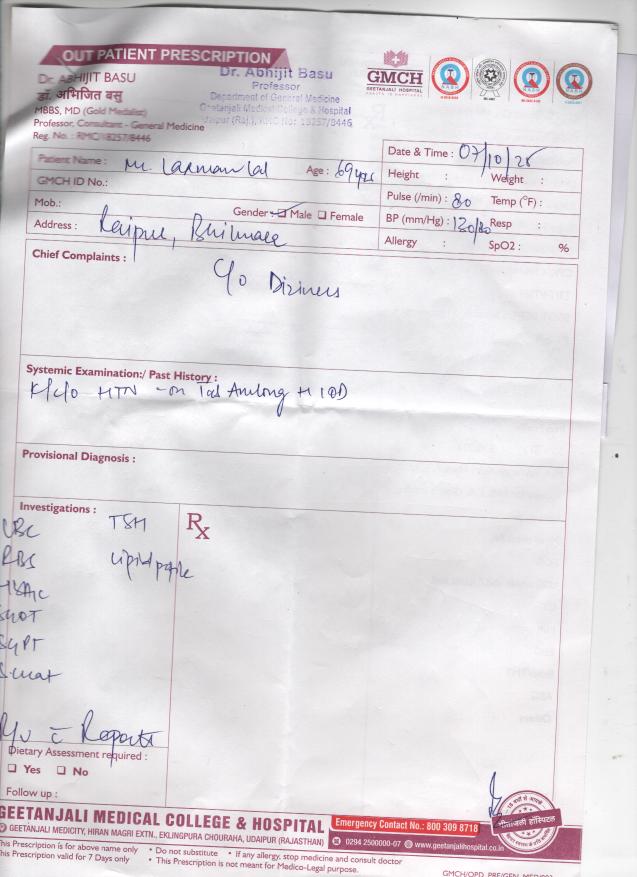 OUT PATIENT PRESCRIPTION
Dr. ABHIJIT BASU
डॉ. अभिजित बसु
MBBS, MD (Gold Medalist)
Professor, Consultant - General Medicine
Reg. No. : RMC/18257/8446
Dr. Abhijit Basu
Professor
Department of General Medicine
Geetanjali Medical College & Hospital
Jaipur (Raj.), RMC No: 18257/8446
GMCH
GEETANJALI HOSPITAL
Patient Name : Mr. Laxman Lal Age : 69 yrs
GMCH ID No.:
Mob.: Gender : Male Female
Address : Raipur,
Date & Time : 07/10/25
Height : Weight :
Pulse (/min) : 80 Temp (°F) :
BP (mm/Hg) : 130/80 Resp :
Allergy : SpO2 : %
Chief Complaints :
C/o Diziness
Systemic Examination:/ Past History :
K/c/o HTN - on Tab Amlong H 1 OD
Provisional Diagnosis :
Investigations :
CBC TSH
RBS Lipid profile
HBA1C
SGOT
SGPT
S.creat
R/v c̄ Reports
Rx
Dietary Assessment required :
Yes No
Follow up :
GEETANJALI MEDICAL COLLEGE & HOSPITAL
GEETANJALI MEDICITY, HIRAN MAGRI EXTN., EKLINGPURA CHOURAHA, UDAIPUR (RAJASTHAN)
Emergency Contact No.: 800 309 8718
0294 2500000-07 www.geetanjalihospital.co.in
गीतांजली हॉस्पिटल
This Prescription is for above name only • Do not substitute • If any allergy, stop medicine and consult doctor
This Prescription valid for 7 Days only • This Prescription is not meant for Medico-Legal purpose.